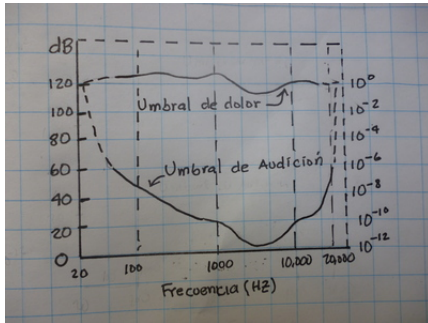 dB
120
100
80
60
40
20
0
Umbral de dolor
Umbral de Audición
10⁰
10⁻²
10⁻⁴
10⁻⁶
10⁻⁸
10⁻¹⁰
10⁻¹²
20 100 1000 10,000 20,000
Frecuencia (HZ)